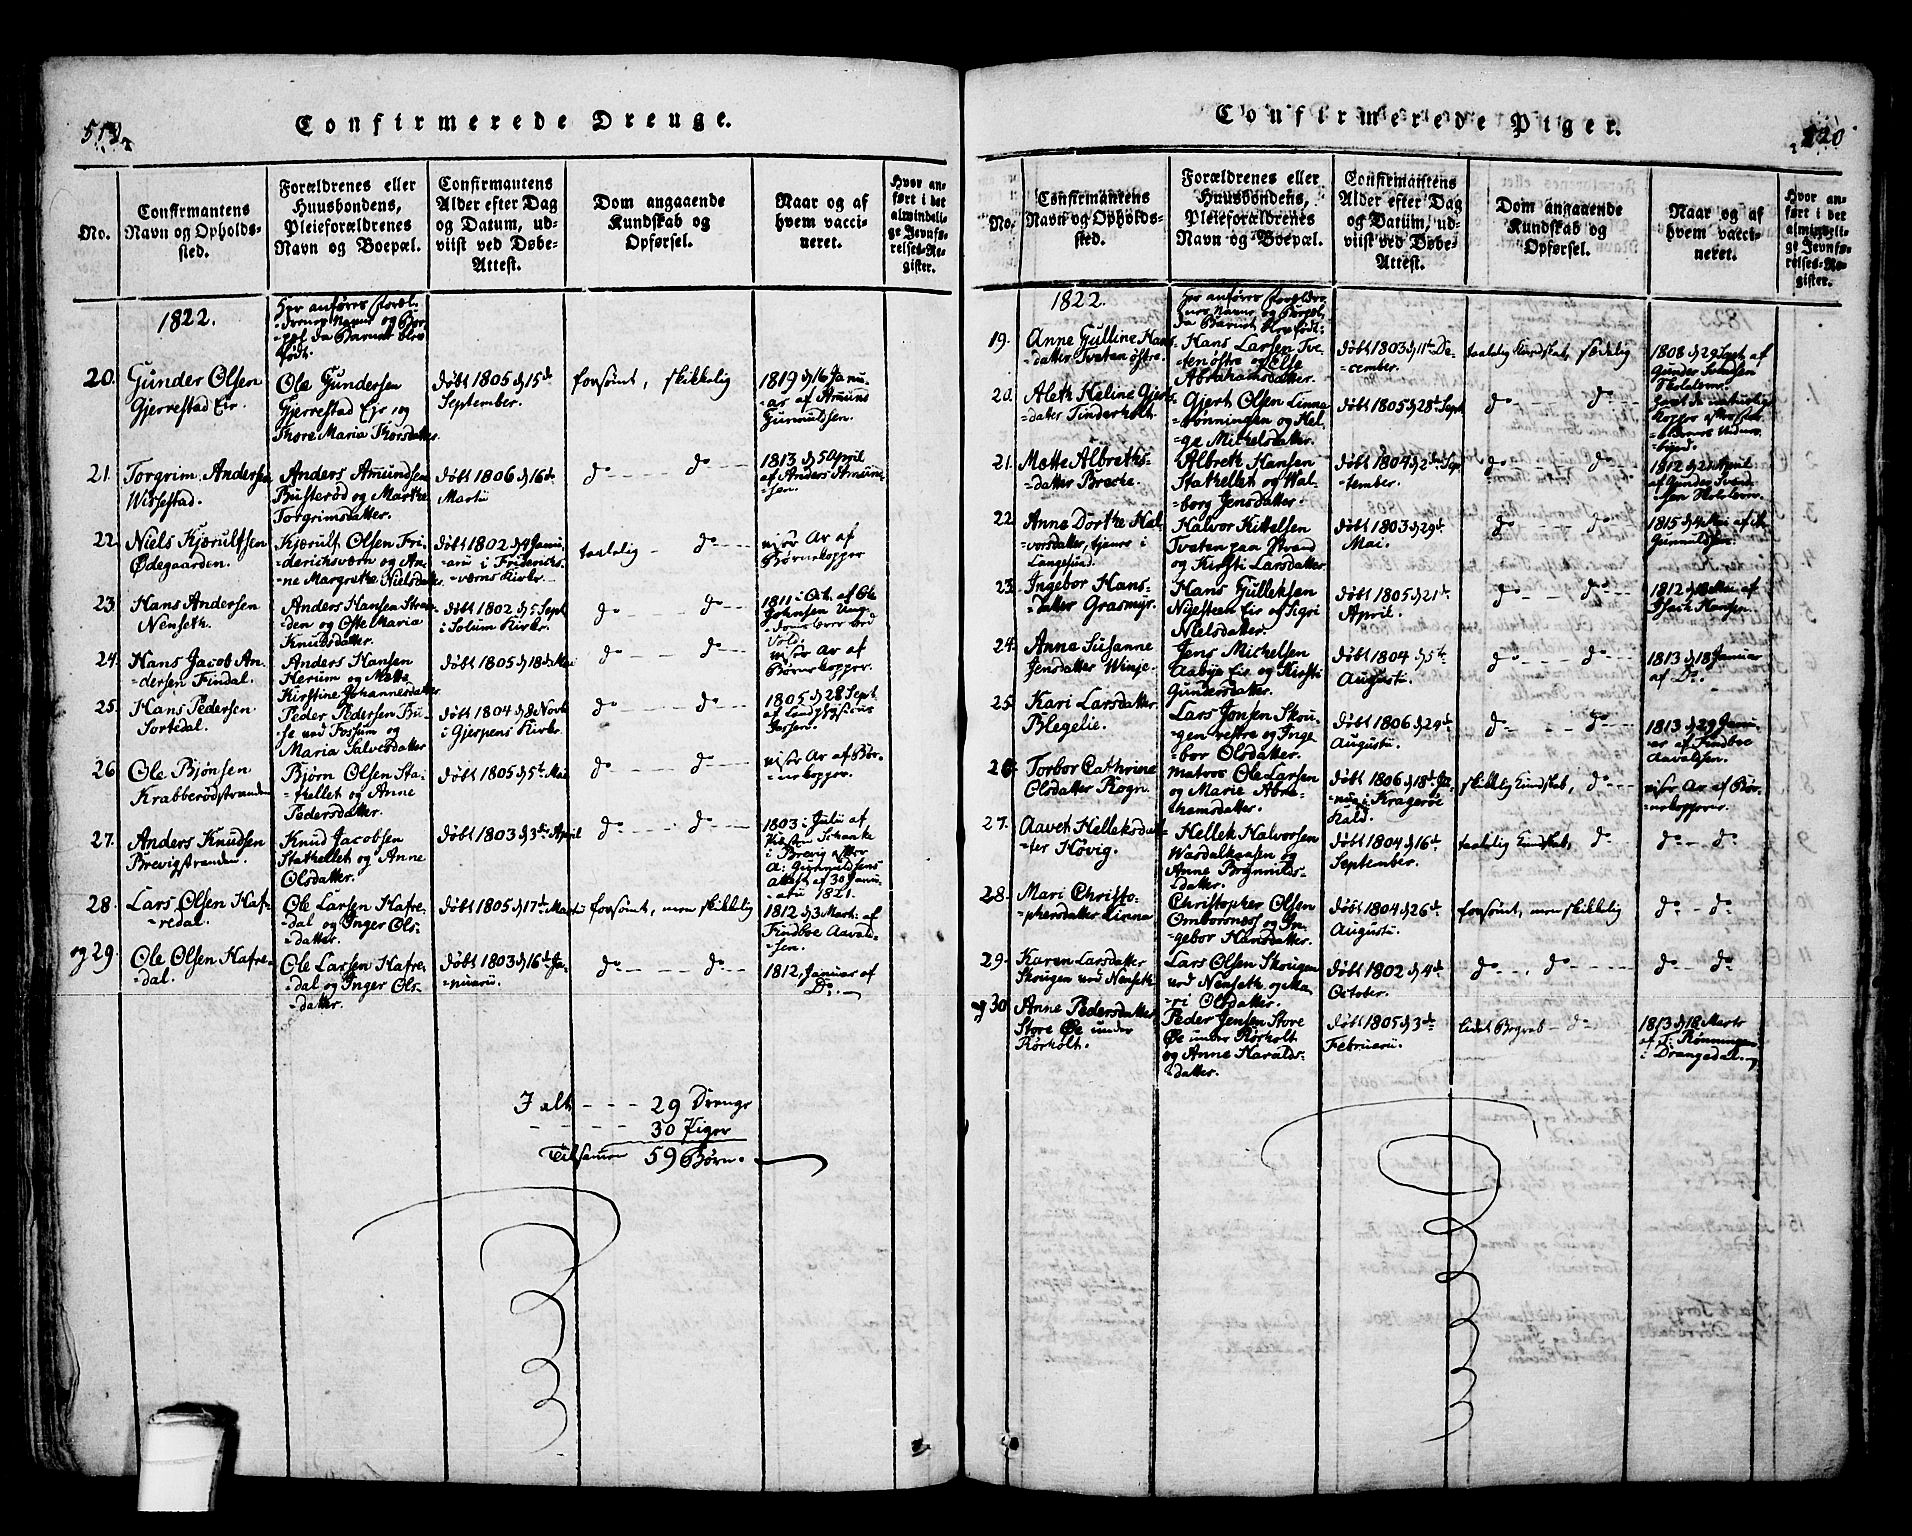 519.
Confirmerede Drenge.
No.
Confirmantens
Navn og Opholds-
sted.
Forældrenes eller
Huusbondens,
Pleieforældrenes
Navn og Boepæl.
Confirmantens
Alder efter Dag
og Datum, ud-
viist ved Døbe-
Attest.
Dom angaaende
Kundskab og
Opførsel.
Naar og af
hvem vacci-
neret.
Hvor an-
ført i det
almindeli-
ge Jevnfø-
relses-Re-
gister.
1822.
Her anføres Foræl-
-drenes Navne og Boe-
-pæl da Barnet blev
født.
20.
Gunder Olsen
Gjerrestad Eir.
Ole Gundersen
Gjerrestad Eje og
Thore Maria Thorsdatter
døbt 1805 d 15de
September.
forsømt, skikkelig
1819 d 16 Janu-
-ar af Amund
Gunnuldsen.
21.
Torgrim Andersen
Wissestad.
Anders Amundsen
Busterød og Marthe
Torgrimsdatter.
døbt 1806 d 16de
Martii
do --- do ---
1813 d 5 April
af Anders Amund-
-sen.
22.
Niels Kjærulfsen
Ødegaarden.
Kjærulf Olsen Fri-
-derichsværn og An-
-ne Margrethe Nielsdatter
døbt 1802 d 4 Janu-
-arii i Friderichs-
-værns Kirke.
taalelig - do ---
viser Ar af
Børnekopper
23.
Hans Andersen
Nenseth.
Anders Hansen Stran-
den og Ofte Maria
Knudsdatter.
døbt 1802 d 5 Sept
i Solum Kirke.
do --- do ---
1811 i Oct. af Ole
Johansen Ung-
-domslærer ved
Vold.
24.
Hans Jacob An-
dersen Findal.
Anders Hansen
Herum og Mette
Kirstine Johannesdatter
døbt 1805 d 18de Mai
do --- do ---
viser Ar af
Børnekopper.
25.
Hans Pedersen
Sortedal.
Peder Pedersen Bu-
-se ved Fossum og
Maria Salvesdatter
døbt 1804 d 8de Novbr
i Gjerpens Kirke.
do --- do ---
1805 d 28 Sept
af Landphysicus
Jessen.
26
Ole Bjønsen
Krabberødstranden
Bjørn Olsen Sta-
-thellet og Anne
Pedersdatter.
døbt 1805 d 5te Mai
do --- do ---
viser Ar af Bør-
-nekopper.
27.
Anders Knudsen
Brevigstranden.
Knud Jacobsen
Stathellet og Anne
Olsdatter.
døbt 1803 d 3de April
do --- do ---
1803 i Julii af
Kirsten Schanke
i Brevig efter
A. Gunnuldsens
Attest af 30 Janu-
-arii 1821.
28.
Lars Olsen Haf-
-redal.
Ole Larsen Hafre-
-dal og Inger Ols-
-datter.
døbt 1805 d 17de Martii
forsømt, men skikkelig
1812 d 3 Mart. af
Findboe Aavald-
-sen.
og 29.
Ole Olsen Hafre-
-dal.
Ole Larsen Hafre-
-dal og Inger Ols-
-datter.
døbt 1803 d 16de Ja-
-nuarii.
do --- do ---
1812, Januar af
Do.
I alt --- 29 Drenge
---- 30 Piger
Tilsamen 59 Børn.
520
Confirmerede Piger.
No.
Confirmantens
Navn og Opholds-
sted.
Forældrenes eller
Huusbondens,
Pleieforældrenes
Navn og Boepæl.
Confirmantens
Alder efter Dag
og Datum, ud-
viist ved Døbe-
Attest.
Dom angaaende
Kundskab og
Opførsel.
Naar og af
hvem vacci-
neret.
Hvor an-
ført i det
almindeli-
ge Jevnfø-
relses-Re-
gister.
1822.
Her anføres Forældre-
-nes Navne og Boepæl
da Barnet blev født.
19.
Anne Gulline Hans-
-datter Tveten østre.
Hans Larsen Tve-
-ten østre og Else
Abrahamsdatter.
døbt 1803 d 11te De-
-cember.
taalelig Kundskab, sædelig
1808 d 29 Sept. af
Gunder Svendsen
Skolelærer.
20.
Aleth Heline Gjerts-
-datter Tinderholt.
Gjert Olsen Linna-
-rønningen og Hel-
-ge Michelsdatter.
døbt 1805 d 28de Sept
do --- do ---
havt de naturlige
Kopper
21.
Mette Albreths-
-datter Brekke.
Albreth Hansen
Stathellet og Wal-
borg Jensdatter.
døbt 1804 d 2den Sep-
-tember.
do --- do ---
1812 d 27 April
af Gunder Svend-
-sen Skolelærer.
22
Anne Dorthe Hal-
vorsdatter, tjener i
Langesund.
Halvor Kittelsen
Tvaten paa Strand
og Kirsti Larsdatter.
døbt 1803 d 29de
Mai.
do --- do ---
1815 d 4 Mai af A.
Gunnuldsen.
23.
Ingebor Hans-
-datter Grasmyr.
Hans Gulleksen
Nysteen Eir og Sigri
Nielsdatter.
døbt 1805 d 21de
April.
do --- do ---
1812 d 18 Mai af
Isach Hansen.
24.
Anne Susanne
Jensdatter Winje.
Jens Michelsen
Aabye Eir og Kirsti
Gundersdatter.
døbt 1804 d 5te
Augusti.
do --- do ---
1813 d 18 Januar
af Do.
25.
Kari Larsdatter
Blegelie.
Lars Jonsen Skou-
-gen vestre og Inge-
-bor Olsdatter.
døbt 1806 d 24de
Augusti.
do --- do ---
1813 d 29 Janu-
-ar af Findboe
Aavaldsen.
26.
Torbor Cathrine
Olsdatter Rogn.
Matros Ole Larsen
og Marie Abra-
-hamsdatter.
døbt 1806 d 18de Ja-
-nua i Kragerøe
Kald.
skikkelig Kundskab, do ---
viser Ar af Bør-
-nekopper.
27.
Aavet Helleksdat-
-ter Høvig.
Hellek Halvorsen
Wasdalhaasen og
Anne Brynnilds-
-datter.
døbt 1804 d 16de
September.
taalelig Kundskab, do
do -- do
28.
Mari Christo-
-phersdatter Linna
Christopher Olsen
Omborsnes og In-
-gebor Hansdatter.
døbt 1804 d 26de
Augusti.
forsømt, men skikkelig
do - do.
29.
Karen Larsdatter
Skougen ved Nenseth
Lars Olsen Skougen
ved Nenseth og Ma-
-ri Olsdatter.
døbt 1802 d 4de
October.
do --, do ----
do -- do
og 30
Anne Pedersdatter
Store Øe under
Rørholt.
Peder Jensen Store
Øe under Rørholt
og Anne Haralds-
-datter.
døbt 1805 d 3de
Februarii.
lidet Begreb - do --
1813 d 18 Marts
af T. Rønningen
i Drangedal.